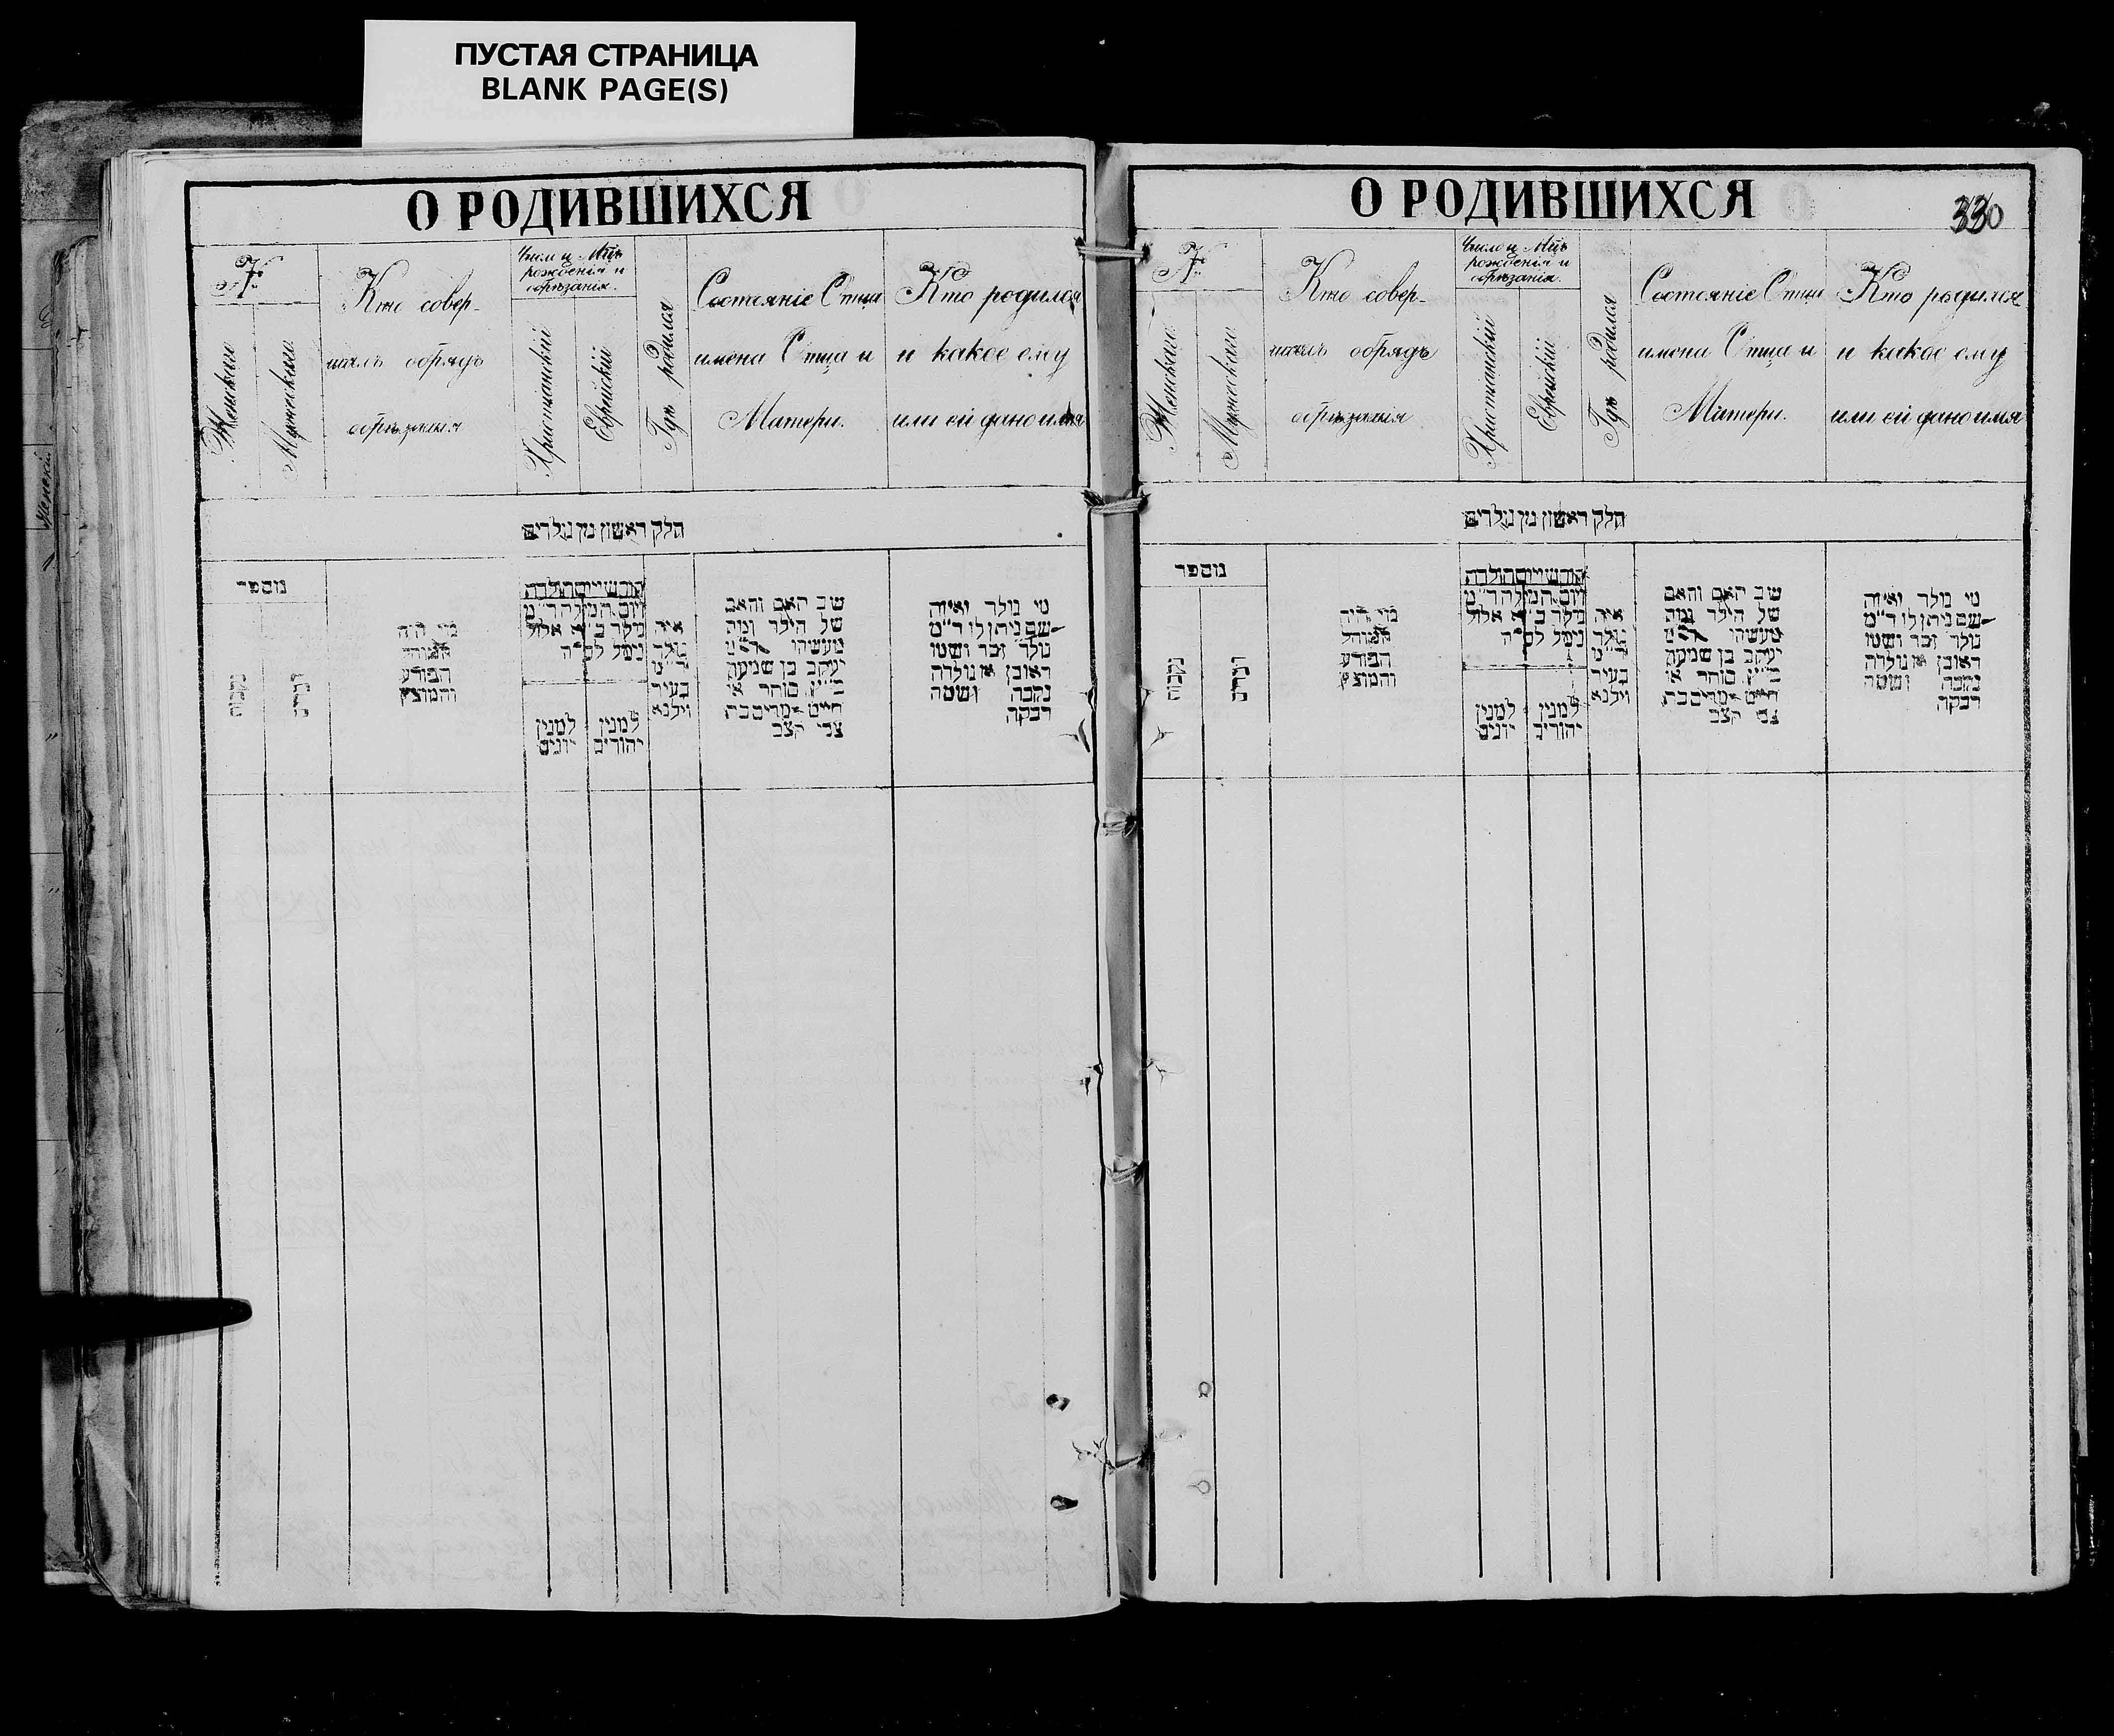 ПУСТАЯ СТРАНИЦА
BLANK PAGE(S)
О РОДИВШИХСЯ
№
Женскаго
Мужескаго
Кто совер-
шалъ обрядъ
обрѣзанія
Число и Мѣц
рожденія и
обрѣзанія.
Христіанскій
Еврейскій
Гдѣ родился
Состояніе Отца
имена Отца и
Матери.
Кто родился
и какое ему
или ей дано имя
חלק ראשון מן נולדים
מספר
נקבות
זכרים
מי היה
המוהל
הפורע
והמוצץ
ויום המילה ד״מ
נולד ב״א אלול
נימל לס״ה
למנין
יונים
למנין
יהודים
איה
נולד
ד״מ
בעיר
וילנא
שם האב והאם
של הילד ומה
מעשיהו ד״מ
יעקב בן שמעון
כ״ץ סוחר או
חייט - מרים בת
צבי קצב
מי נולד ואיזה
שם ניתן לו ד״מ
נולד זכר ושמו
ראובן או נולדה
נקבה ושמה
רבקה
О РОДИВШИХСЯ
330
№
Женскаго
Мужескаго
Кто совер-
шалъ обрядъ
обрѣзанія
Число и Мѣц
рожденія и
обрѣзанія.
Христіанскій
Еврейскій
Гдѣ родился
Состояніе Отца
имена Отца и
Матери.
Кто родился
и какое ему
или ей дано имя
חלק ראשון מן נולדים
מספר
נקבות
זכרים
מי היה
המוהל
הפורע
והמוצץ
ויום המילה ד״מ
נולד ב״א אלול
נימל לס״ה
למנין
יונים
למנין
יהודים
איה
נולד
ד״מ
בעיר
וילנא
שם האב והאם
של הילד ומה
מעשיהו ד״מ
יעקב בן שמעון
כ״ץ סוחר או
חייט - מרים בת
צבי קצב
מי נולד ואיזה
שם ניתן לו ד״מ
נולד זכר ושמו
ראובן או נולדה
נקבה ושמה
רבקה